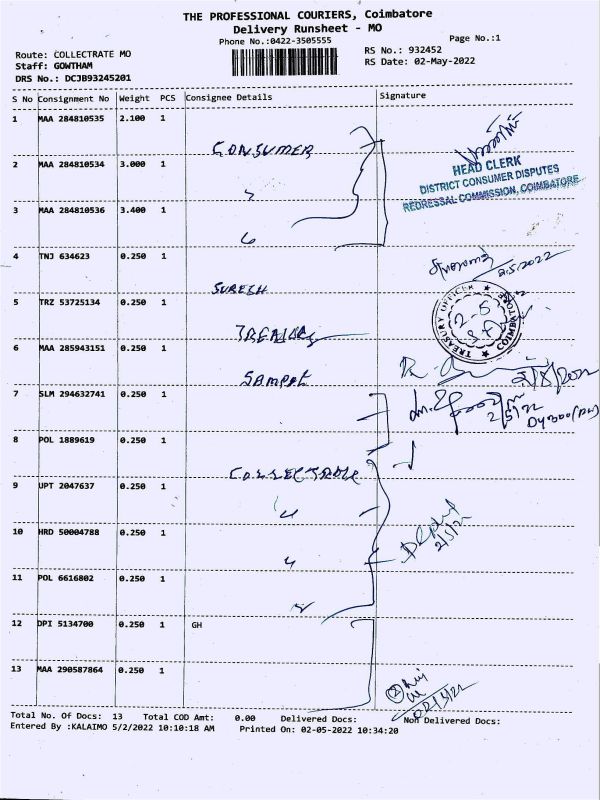 THE PROFESSIONAL COURIERS, Coimbatore
Delivery Runsheet - MO
Phone No.:0422-3505555
Page No.:1
Route: COLLECTRATE MO
Staff: GOWTHAM
DRS No.: DCJB93245201
RS No.: 932452
RS Date: 02-May-2022
S No Consignment No Weight PCS Consignee Details Signature
1 MAA 284810535 2.100 1
CONSUMER
HEAD CLERK
DISTRICT CONSUMER DISPUTES
REDRESSAL COMMISSION, COIMBATORE
2 MAA 284810534 3.000 1
3 MAA 284810536 3.400 1
4 TNJ 634623 0.250 1
2.5.2022
SURESH
5 TRZ 53725134 0.250 1
TREASURY OFFICER COIMBATORE
6 MAA 285943151 0.250 1
SAMPAT
7 SLM 294632741 0.250 1
2/5/22
8 POL 1889619 0.250 1
COLLECTRATE
9 UPT 2047637 0.250 1
10 HRD 50004788 0.250 1
2/5/22
11 POL 6616802 0.250 1
12 DPI 5134700 0.250 1 GH
13 MAA 290587864 0.250 1
Total No. Of Docs: 13 Total COD Amt: 0.00 Delivered Docs: Non Delivered Docs:
Entered By :KALAIMO 5/2/2022 10:10:18 AM Printed On: 02-05-2022 10:34:20